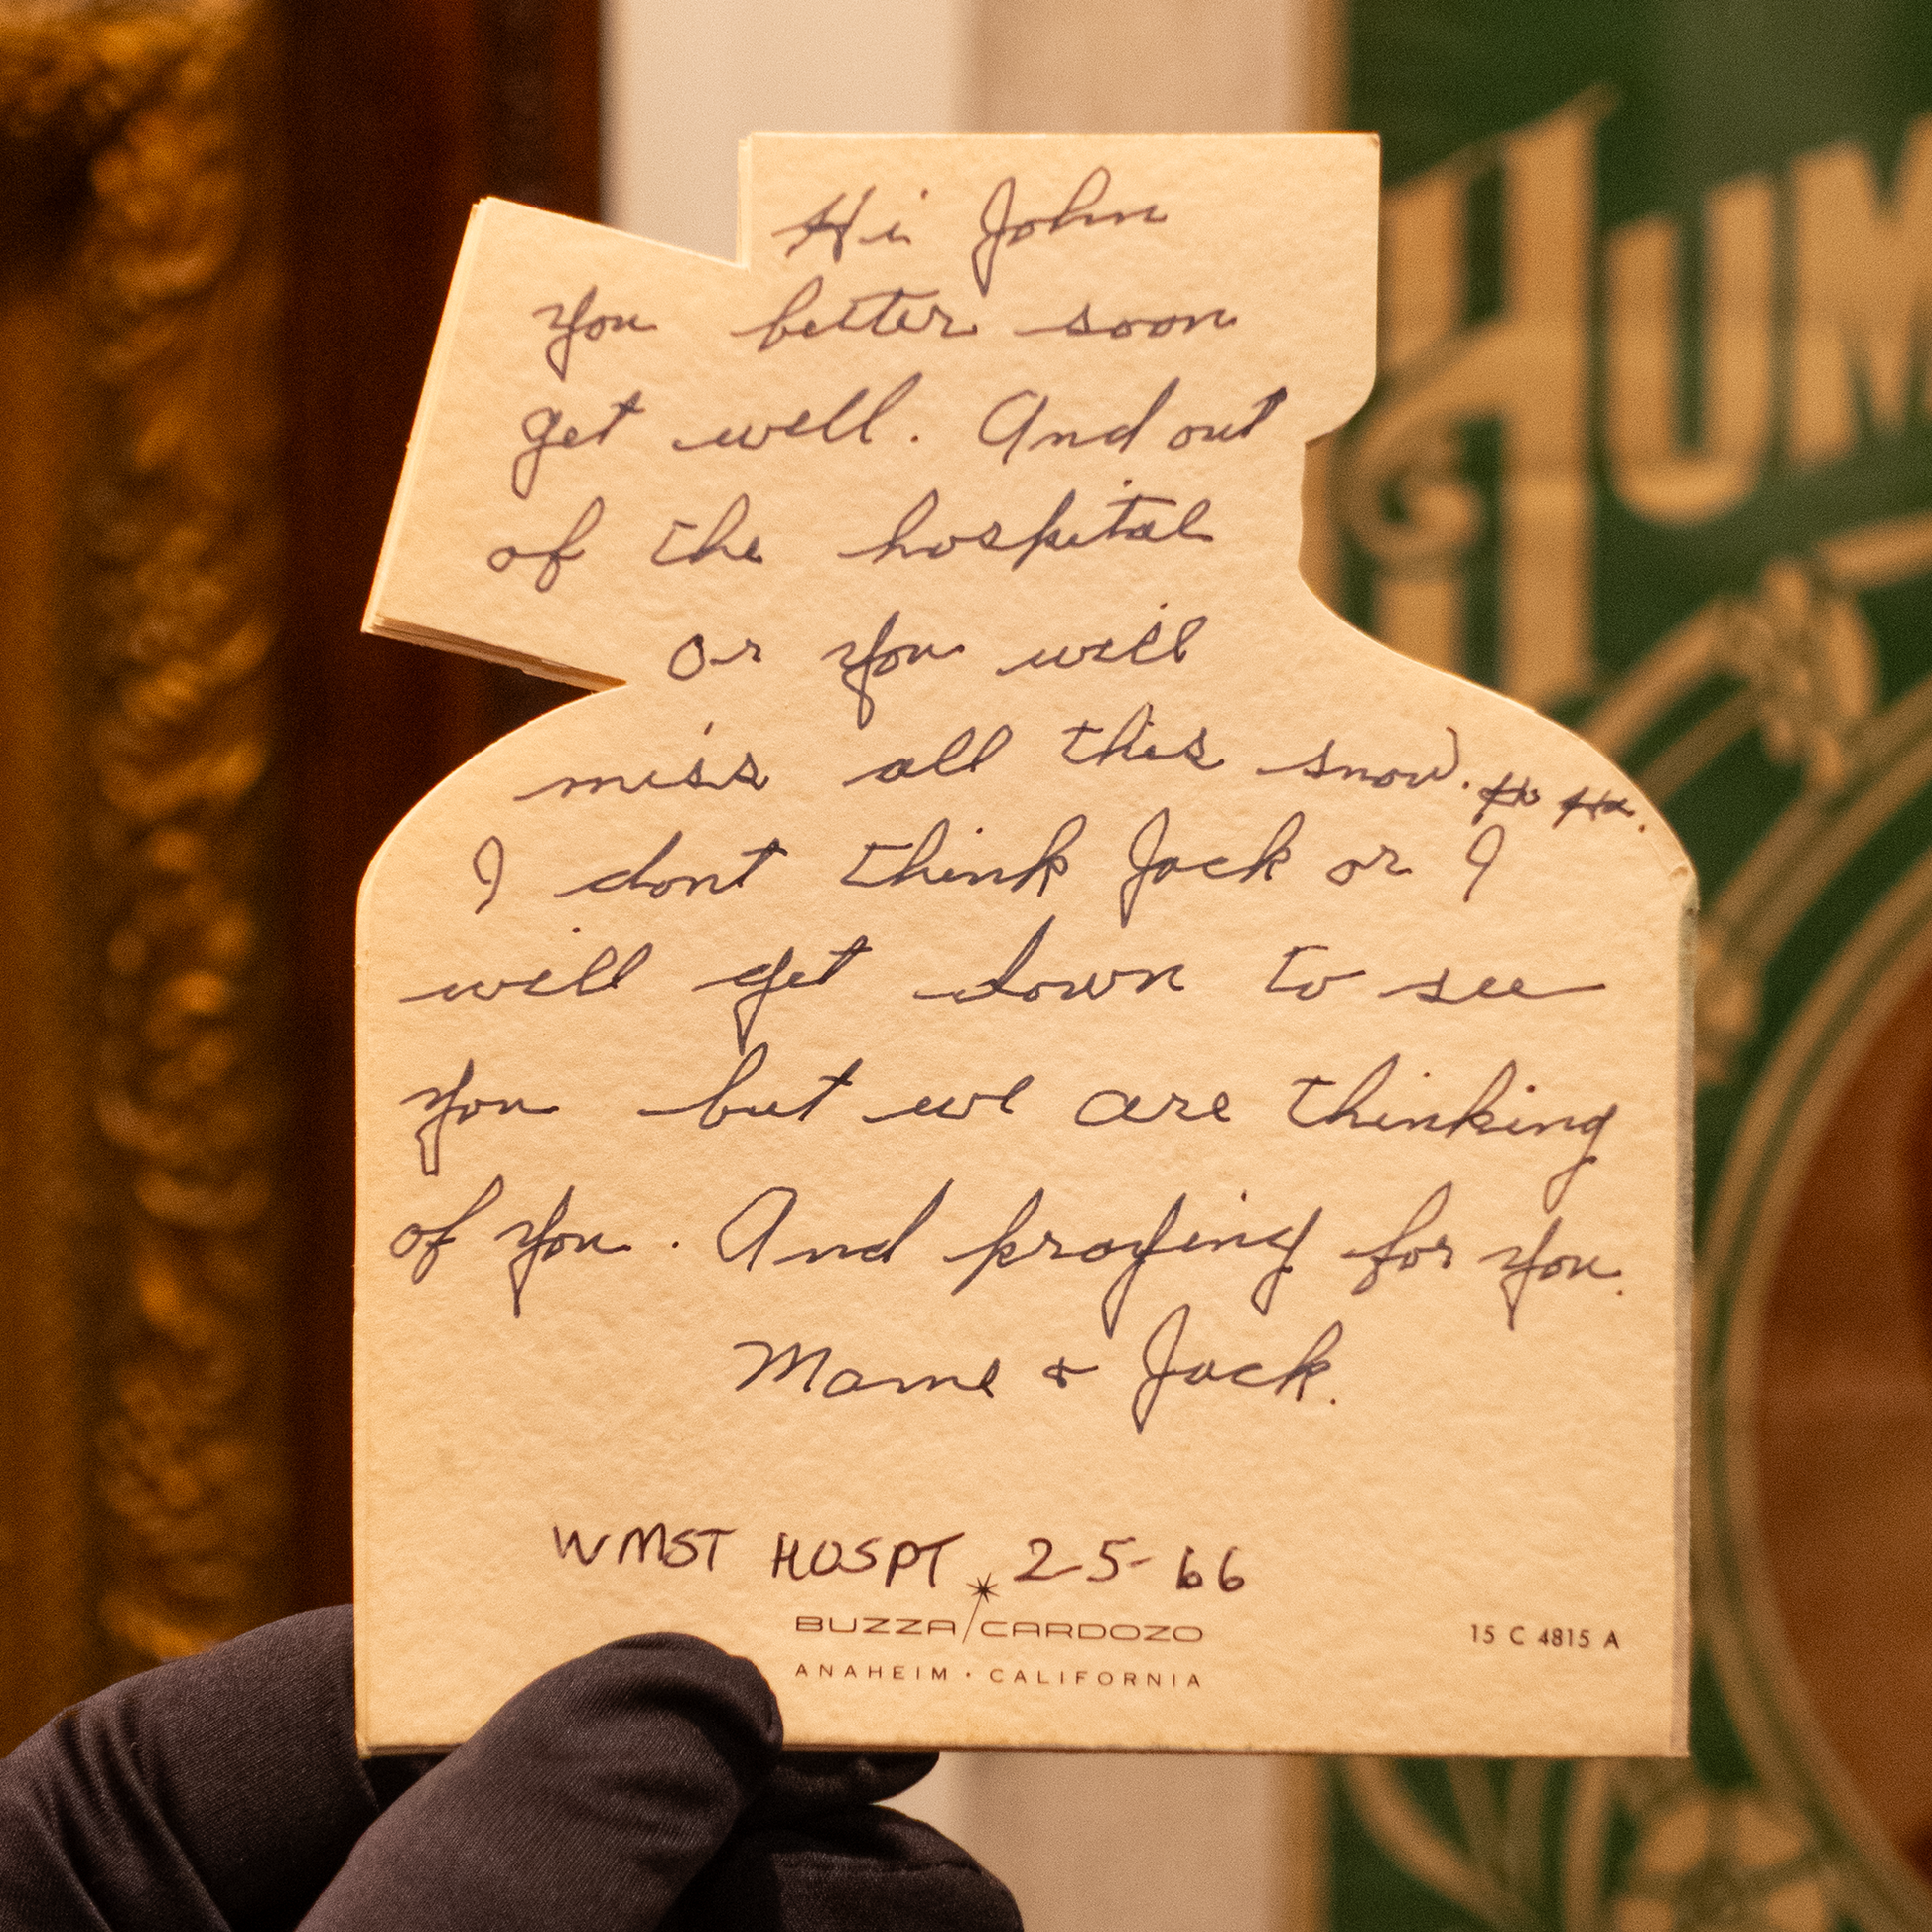 Hi John
you better soon
get well. And out
of the hospital
or you will
miss all this snow. Ha Ha.
I dont think Jack or I
will get down to see
you but we are thinking
of you. And praying for you.
Mame & Jack.
WMST HOSPT 2-5-66
BUZZA/CARDOZO
ANAHEIM · CALIFORNIA
15 C 4815 A
HUM